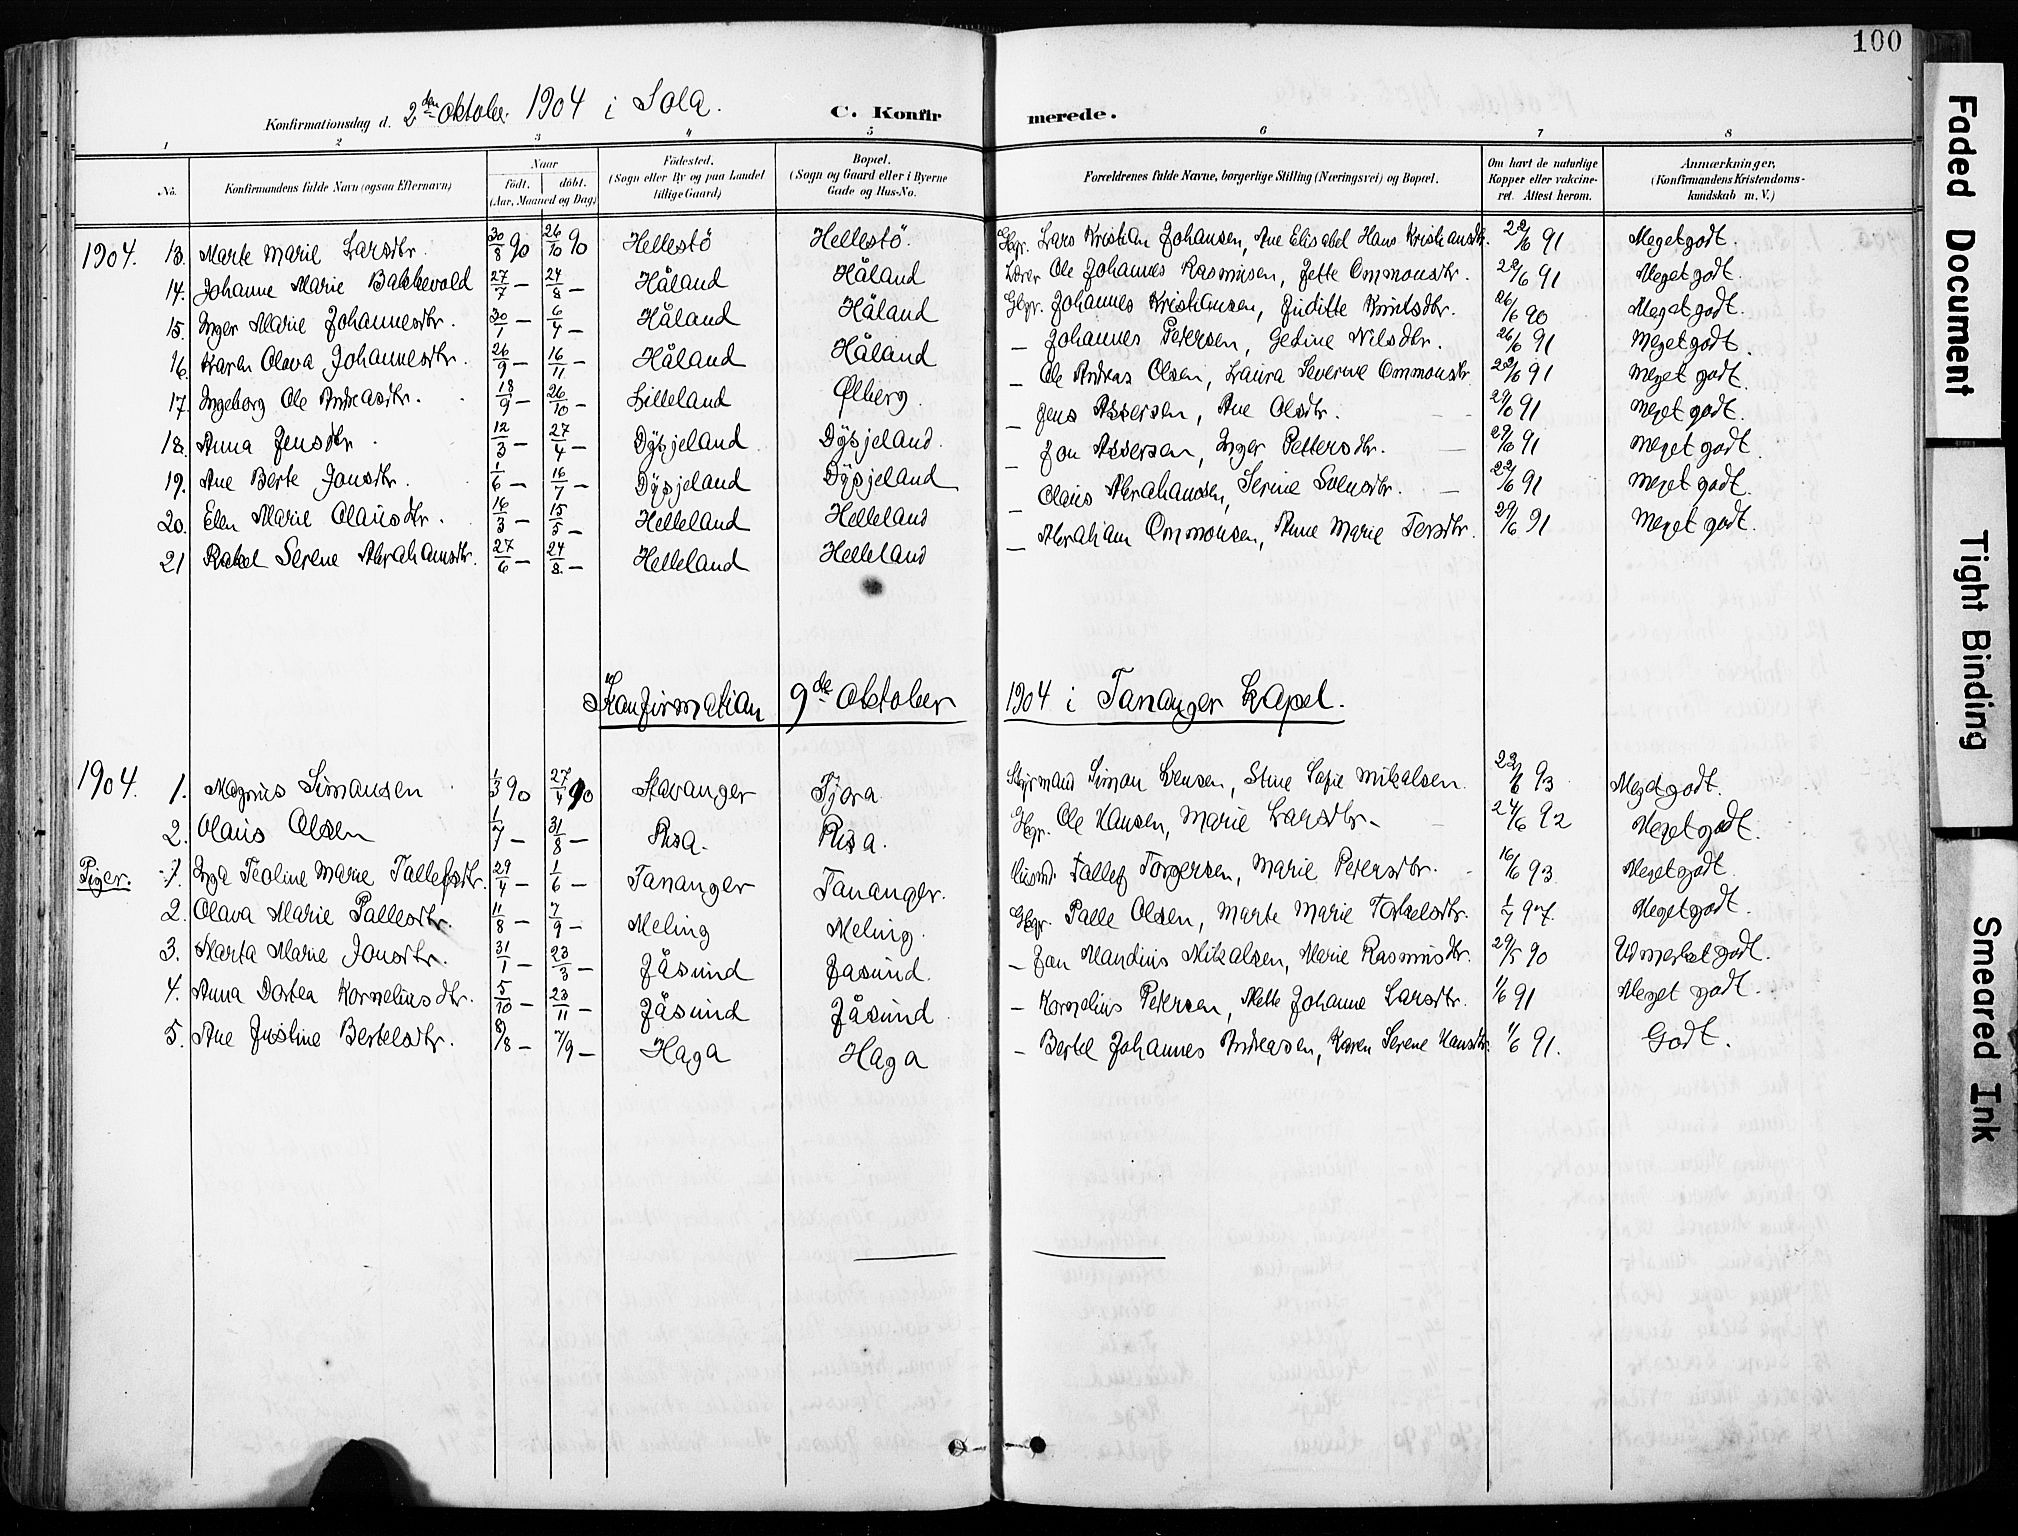 100
Konfirmationsdag d. 2den Oktober 1904 i Sola. C. Konfirmerede.
1 2 3 4 5 6 7 8
No. Konfirmandens fulde Navn (ogsaa Efternavn) Naar født. døbt. (Aar, Maaned og Dag) Fødested. (Sogn eller By og paa Landet tillige Gaard) Bopæl. (Sogn og Gaard eller i Byerne Gade og Hus-No. Forældrenes fulde Navne, borgerlige Stilling (Næringsvei) og Bopæl. Om havt de naturlige Kopper eller vakcineret. Attest herom. Anmærkninger, (Konfirmandens Kristendomskundskab m. V.)
1904. 13. Marte Marie Larsdtr. 30/8 90 26/10 90 Hellestö Hellestö. Gbgr. Lars Kristian Johansen, Ane Elisabet Hans Kristiansdtr. 22/6 91 Meget godt.
14. Johanne Marie Bakkevold 27/7 — 24/8 — Håland Håland Lærer Ole Johannes Rasmusen, Jette Ommonsdtr. 22/6 91 Meget godt.
15. Inger Marie Johannesdtr. 30/1 — 6/4 — Håland Håland Gbgr. Johannes Kristiansen, Juditte Knutsdtr. 26/6 90 Meget godt.
16. Karen Olava Johannesdtr. 26/9 — 16/11 Håland Håland — Johannes Petersen, Gedine Nilsdtr. 26/6 91 Meget godt.
17. Ingeborg Ole Andreasdtr. 18/9 — 26/10 — Lilleland Ølberg. — Ole Andreas Olsen, Laura Severine Ommonsdtr 22/6 91 Meget godt.
18. Anna Jensdtr. 12/3 — 27/4 — Dysjeland Dysjeland. — Jens Assersen, Ane Olsdtr. 29/6 91 Meget godt.
19. Ane Berte Jonsdtr. 1/6 — 16/7 — Dysjeland Dysjeland — Jon Assersen, Inger Pettersdtr. 29/6 91 Meget godt.
20. Elen Marie Olausdtr. 16/3 — 15/5 — Helleland Helleland — Olaus Abrahamsen, Serine Svensdtr. 22/6 91 Meget godt.
21 Rakel Serene Abrahamsdtr. 27/6 — 24/8. — Helleland Helleland — Abraham Ommonsen, Anne Marie Tersdtr. 29/6 91 Meget godt.
Konfirmation 9de Oktober 1904 i Tananger Kapel.
1904. 1. Magnus Simonsen 1/3 90 27/4 90 Stavanger Tjora Styrmand Simon Svensen, Stine Sofie Mikalsen. 22/6 93 Meget godt.
2. Olaus Olsen 1/7 — 31/8 — Risa. Risa. Gbgr. Ole Hansen, Marie Larsdtr. 24/6 92 Meget godt.
Piger. 1. Inga Teoline Marie Tallefsdtr. 29/4 — 1/6 — Tananger Tananger. Husmd. Tallef Torgersen, Marie Petersdtr. 16/6 93 Meget godt.
2. Olava Marie Pallesdtr. 11/8 — 7/9 — Meling Meling. Gbgr. Palle Olsen, Marte Marie Torkelsdtr. Meget godt.
3. Marta Marie Jonsdtr. 31/1 — 23/3 — Jåsund Jasund. — Jon Mandius Mikalsen, Marie Rasmusdtr. 29/5 90 Udmerket godt.
4. Anna Dortea Korneliusdtr. 5/10 — 23/11 — Jåsund Jåsund — Kornelius Petersen, Mette Johanne Larsdtr. 1/6 91 Meget godt.
5. Ane Justine Bertelsdtr. 8/8 — 7/9 — Haga Haga — Bertel Johannes Andreasen, Karen Serene Hansdtr. 1/6 91. Godt.
Faded Document
Tight Binding
Smeared Ink